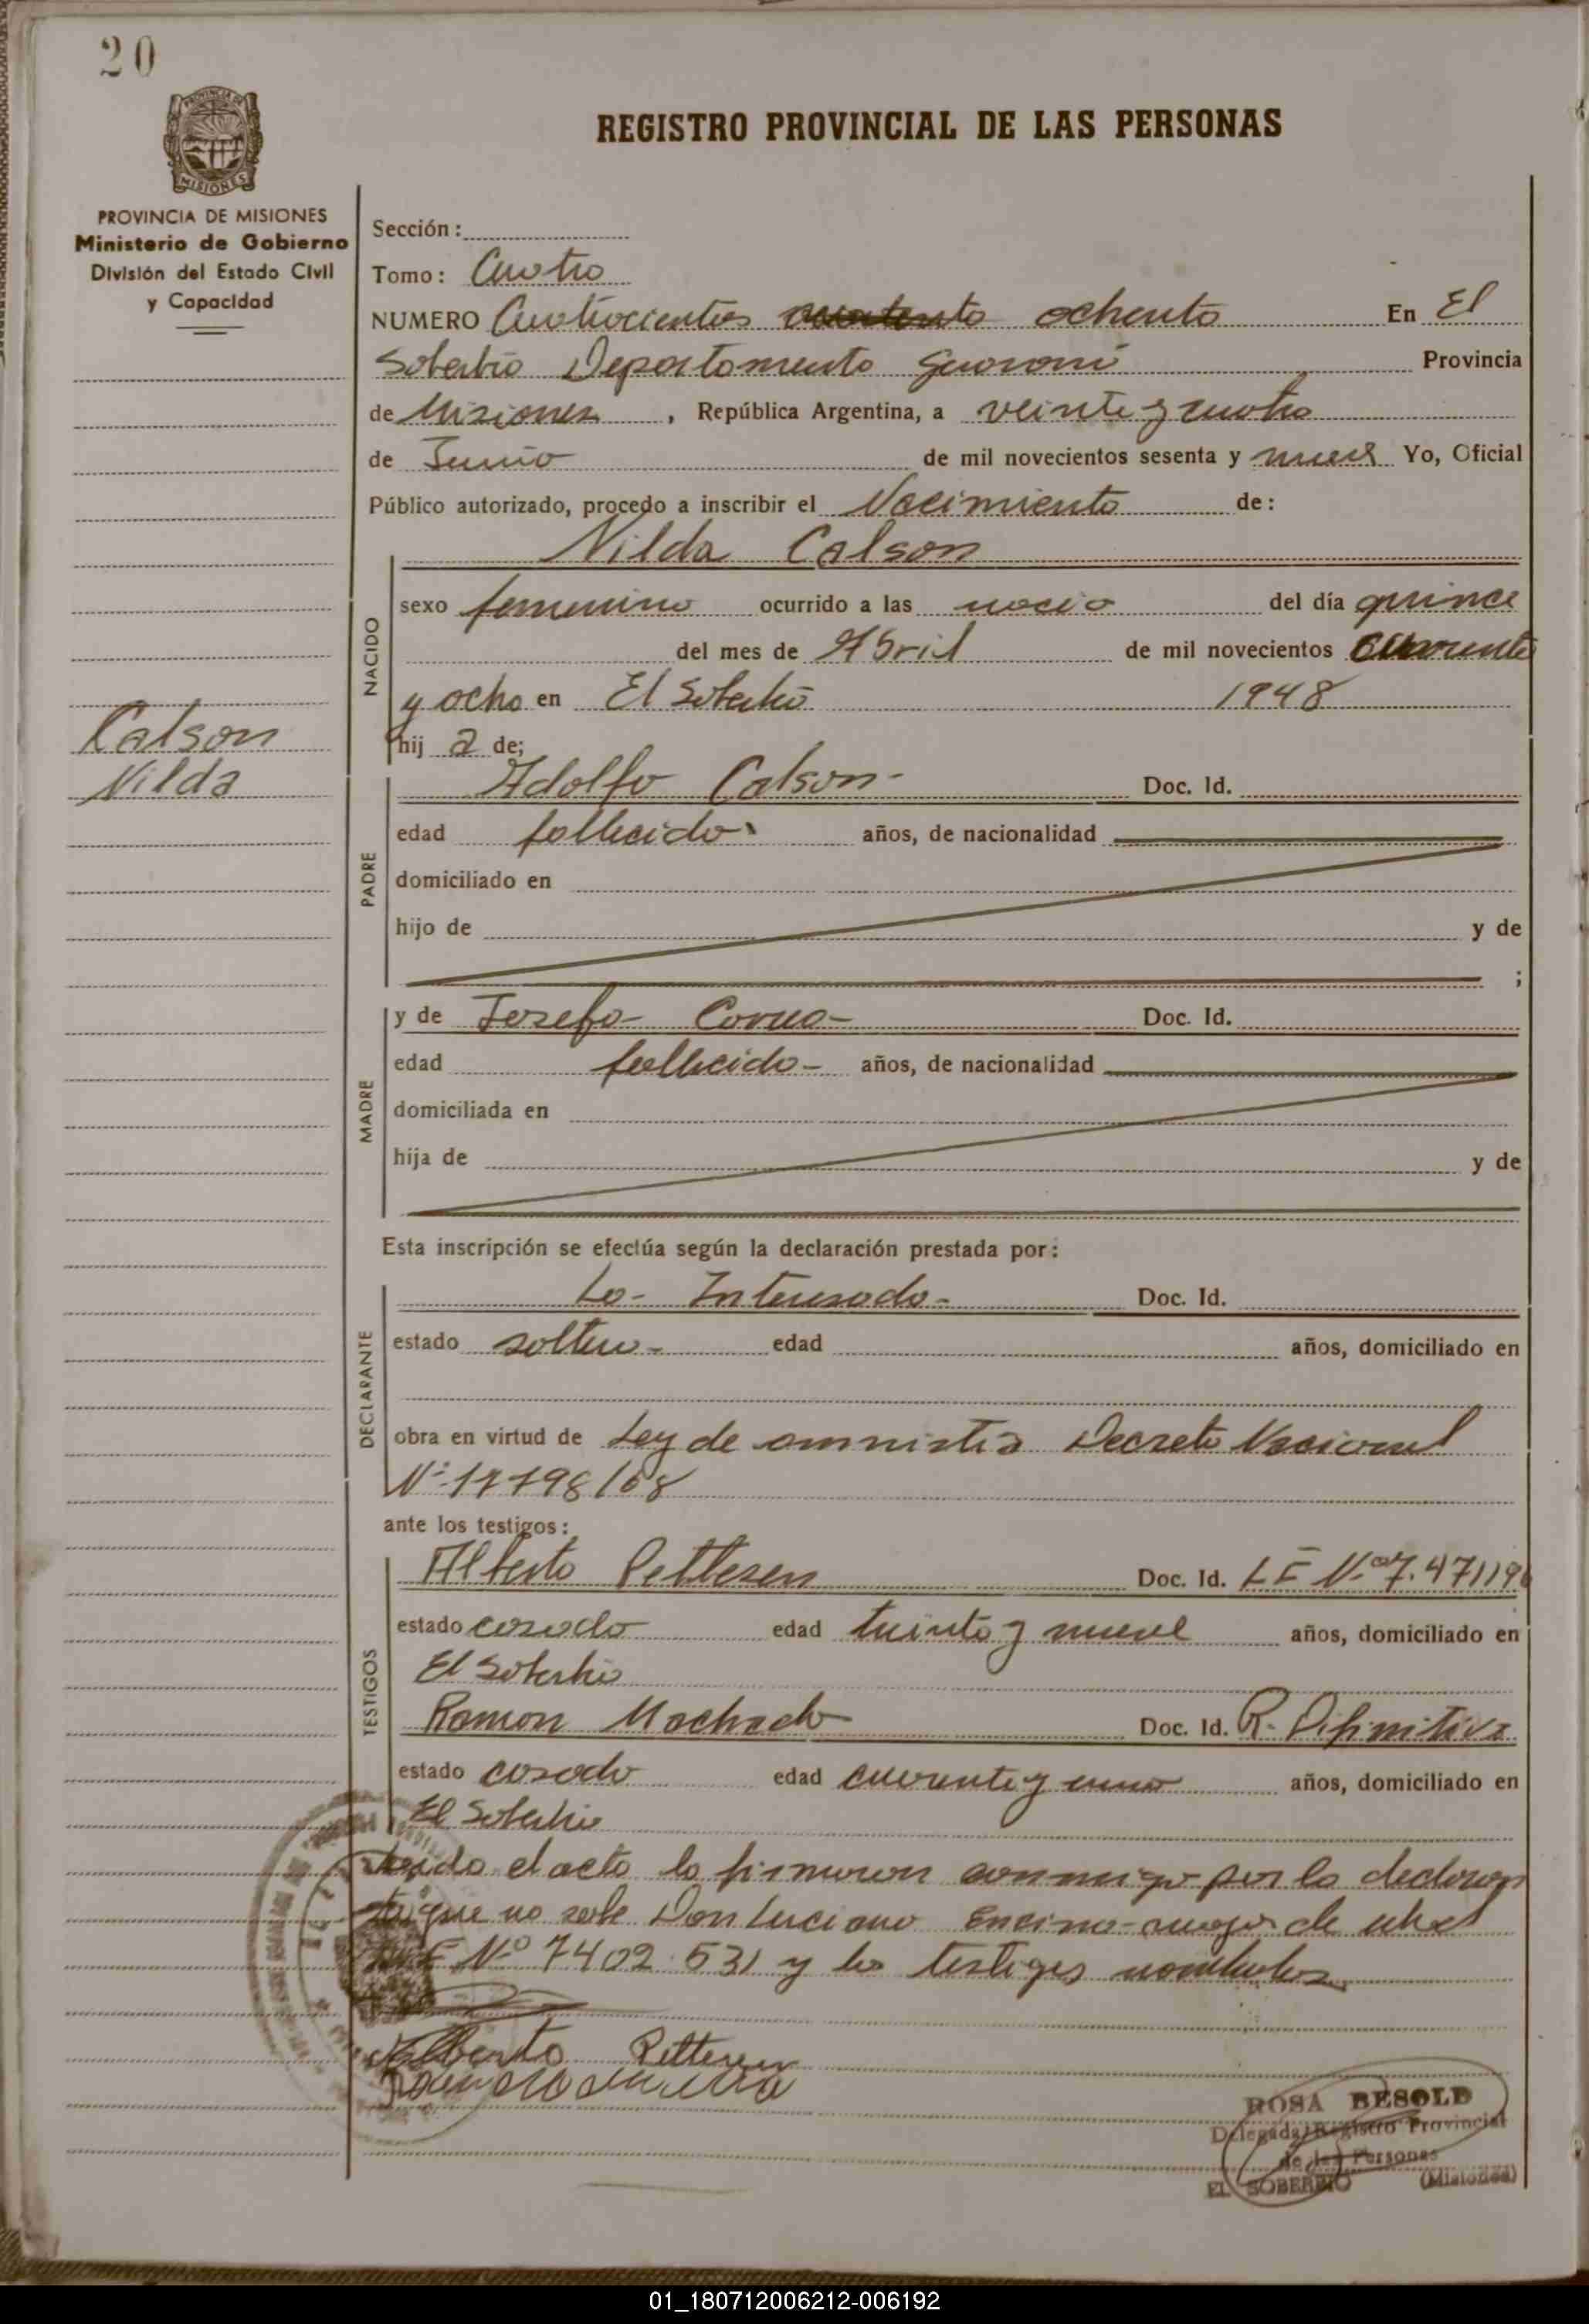 20
PROVINCIA DE MISIONES
Ministerio de Gobierno
División del Estado Civil
y Capacidad
REGISTRO PROVINCIAL DE LAS PERSONAS
Sección:
Tomo: Cuatro
NUMERO Cuatrocientos ochenta En El
Soberbio Departamento Guaraní Provincia
de Misiones, República Argentina, a veinte y cuatro
de Junio de mil novecientos sesenta y nueve Yo, Oficial
Público autorizado, procedo a inscribir el Nacimiento de:
Nilda Calson
NACIDO
sexo femenino ocurrido a las del día quince
del mes de Abril de mil novecientos cuarenta
y ocho en El Soberbio 1948
hij a de;
Calson
Nilda
PADRE
Adolfo Calson- Doc. Id.
edad fallecido años, de nacionalidad
domiciliado en
hijo de y de
;
MADRE
y de Josefa Doc. Id.
edad fallecida- años, de nacionalidad
domiciliada en
hija de y de
Esta inscripción se efectúa según la declaración prestada por:
DECLARANTE
La- Interesada- Doc. Id.
estado soltera- edad años, domiciliado en
obra en virtud de Ley de amnistia Decreto Nacional
Nº 17798/68
ante los testigos:
TESTIGOS
Alberto Pettersen Doc. Id. LE Nº 7.471190
estado casado edad treinta y nueve años, domiciliado en
El Soberbio
Ramon Machado Doc. Id. R. Difinitiva
estado casado edad cuarenta y uno años, domiciliado en
El Soberbio
Leida el acta la firmaron conmigo por la declaran
te que no sabe Don Luciano Encina mayor de edad
Nº 7402.531 y los testigos nombrados
Alberto Pettersen
ROSA BESOLD
Delegada Registro Provincial
de las Personas
EL SOBERBIO (Misiones)
01_180712006212-006192